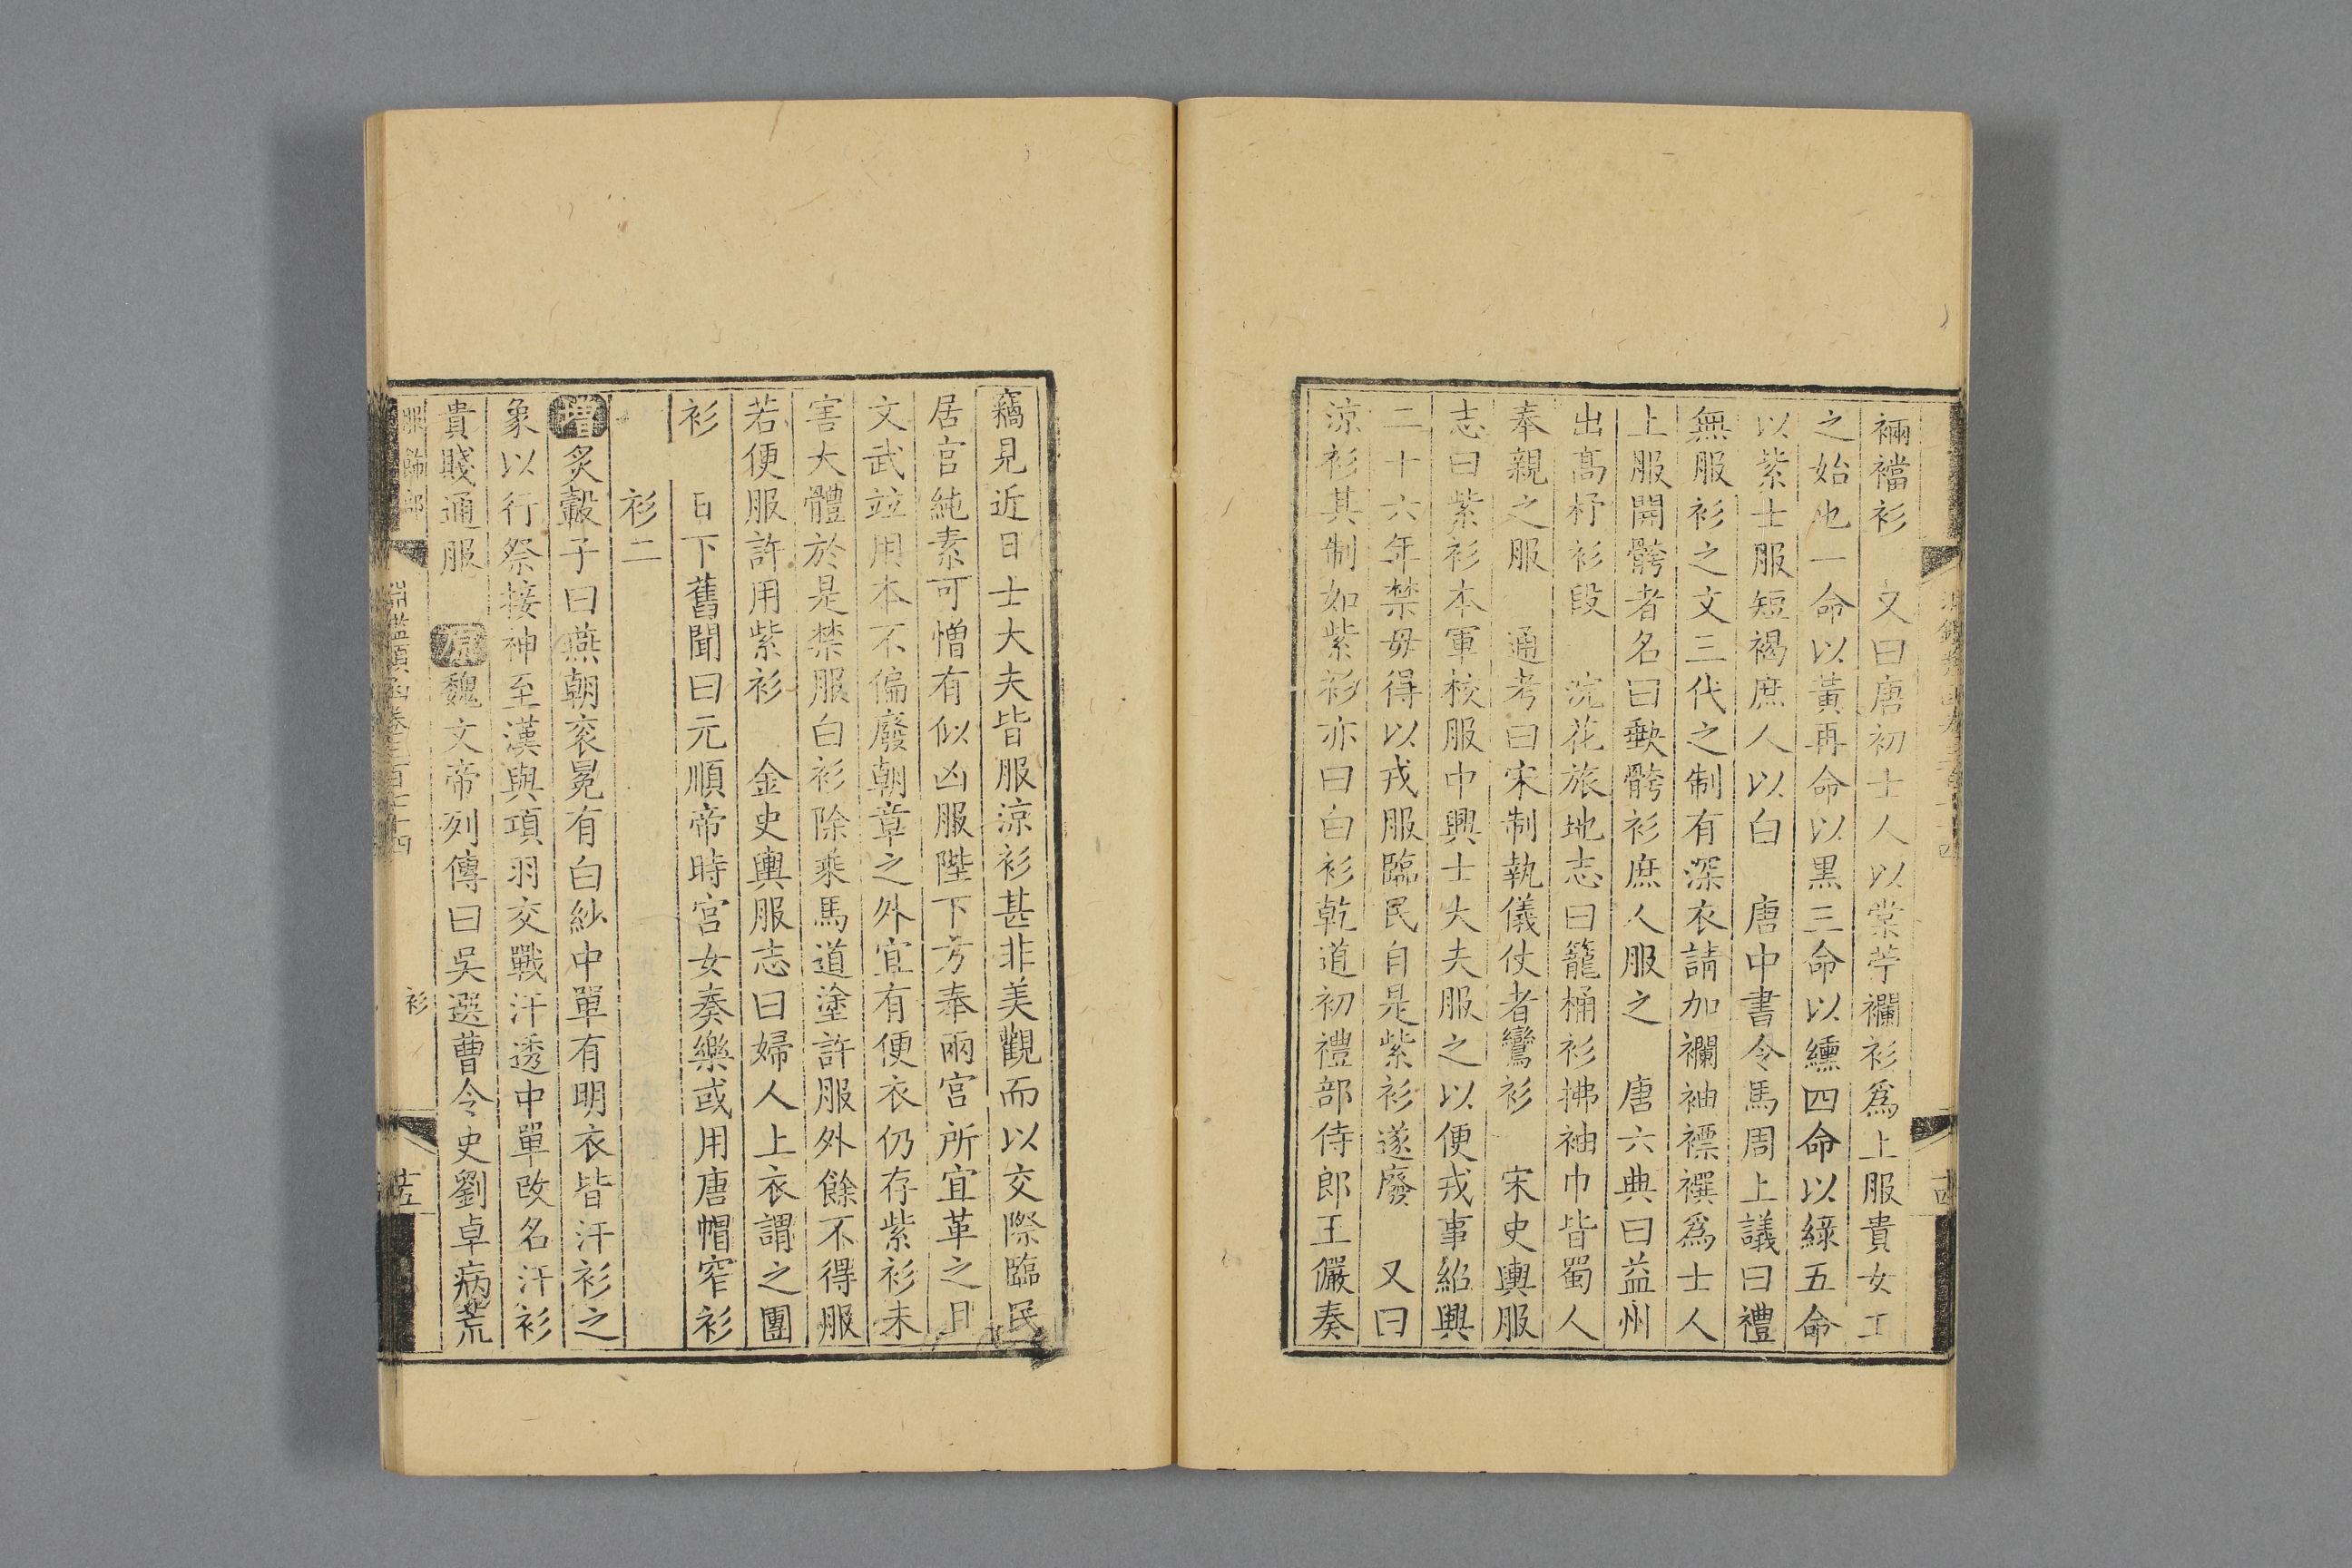 裲襠衫　又曰唐初士人以棠苧襴衫爲上服貴女工
之始也一命以黃再命以黑三命以纁四命以綠五命
以紫士服短褐庶人以白　唐中書令馬周上議曰禮
無服衫之文三代之制有深衣請加襴袖褾襈爲士人
上服開骻者名曰䞣骻衫庶人服之　唐六典曰益州
出高杼衫段　浣花旅地志曰籠桶衫拂袖巾皆蜀人
奉親之服　通考曰宋制執儀仗者鸞衫　宋史輿服
志曰紫衫本軍校服中興士大夫服之以便戎事紹興
二十六年禁毋得以戎服臨民自是紫衫遂廢　又曰
涼衫其制如紫衫亦曰白衫乾道初禮部侍郎王儼奏
竊見近日士大夫皆服涼衫甚非美觀而以交際臨民
居官純素可憎有似凶服陛下方奉兩宮所宜革之且
文武竝用本不偏廢朝章之外宜有便衣仍存紫衫未
害大體於是禁服白衫除乘馬道塗許服外餘不得服
若便服許用紫衫　金史輿服志曰婦人上衣謂之團
衫　日下舊聞曰元順帝時宮女奏樂或用唐帽窄衫
衫二
增炙轂子曰燕朝衮冕有白紗中單有明衣皆汗衫之
象以行祭接神至漢與項羽交戰汗透中單改名汗衫
貴賤通服　原魏文帝列傳曰吳選曹令史劉卓病荒
服飾部
淵鑑類函卷三百七十四
衫